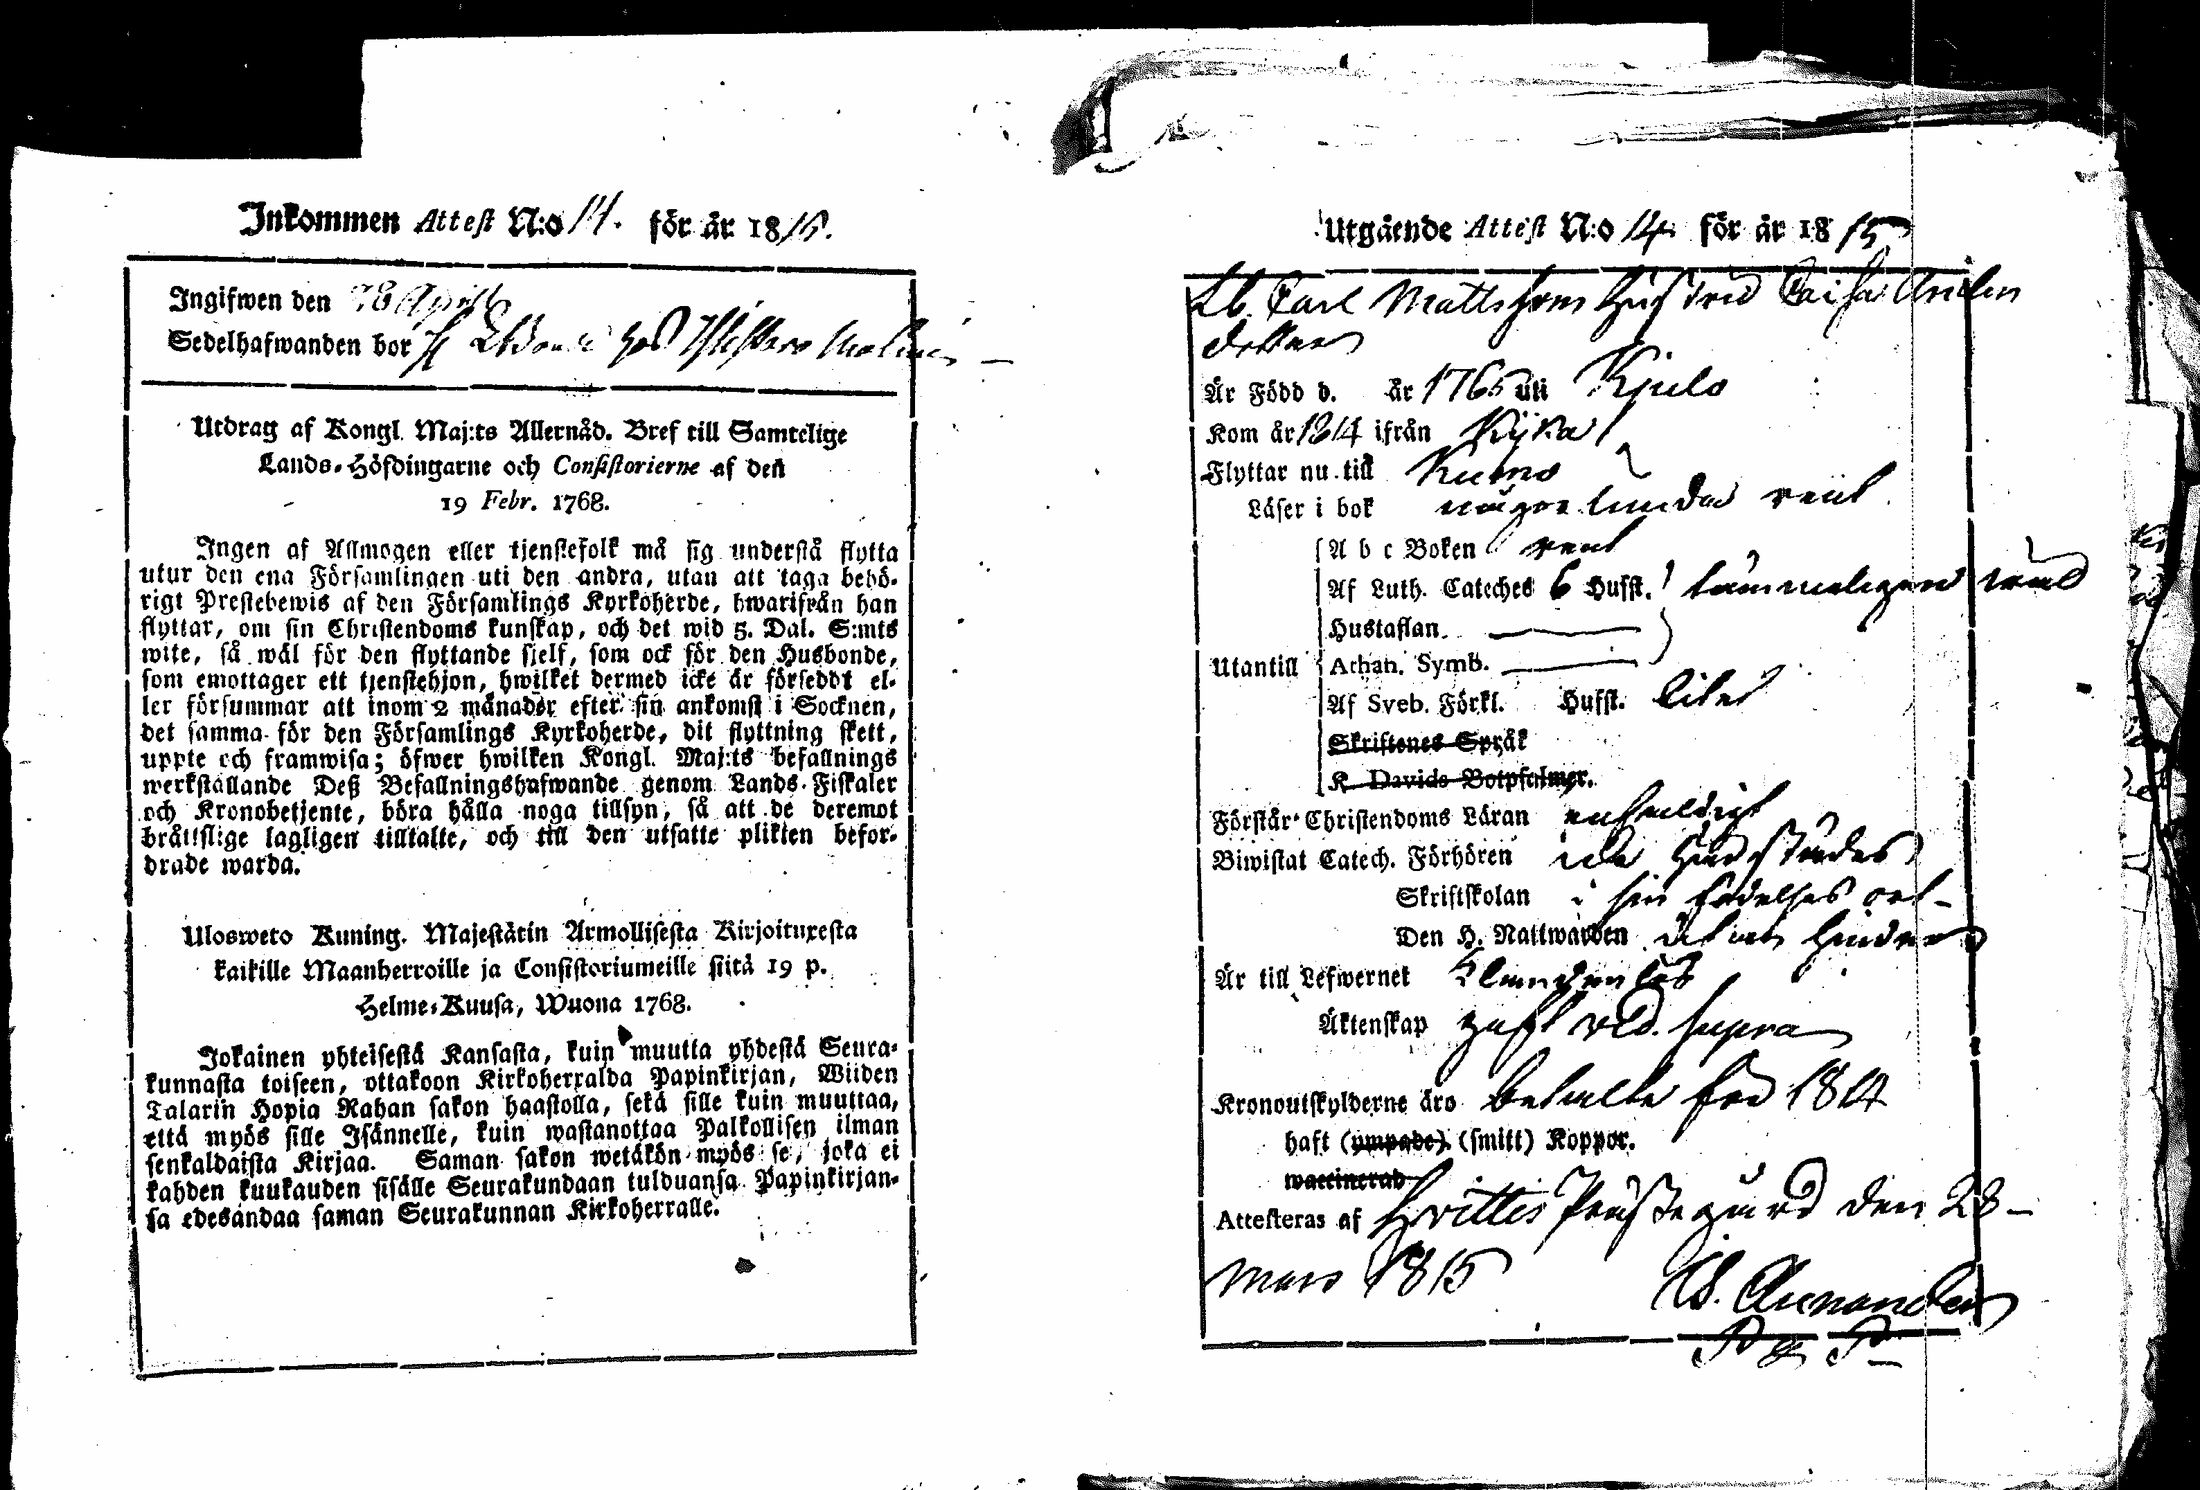 Inkommen Attest N:o 14. för år 1815.
Ingifwen den 28 April
Sedelhafwanden bor hos
Utdrag af Kongl. Maj:ts Allernåd. Bref till Samtelige
Lands-Höfdingarne och Consistorierne af den
19 Febr. 1768.
Ingen af Allmogen eller tjenstefolk må sig understå flytta
utur den ena Församlingen uti den andra, utan att taga behö-
rigt Prestebewis af den Församlings Kyrkoherde, hwarifrån han
flyttar, om sin Christendoms kunskap, och det wid 5. Dal. S:mts
wite, så wäl för den flyttande sjelf, som ock för den Husbonde,
som emottager ett tjenstehjon, hwilket dermed icke är förseddt el-
ler försummar att inom 2 månader efter sin ankomst i Socknen,
det samma för den Församlings Kyrkoherde, dit flyttning skett,
uppte och framwisa; öfwer hwilken Kongl. Maj:ts befallnings
werkställande Deß Befallningshafwande genom Lands-Fiskaler
och Kronobetjente, böra hålla noga tillsyn, så att de deremot
bråttslige lagligen tilltalte, och till den utsatte plikten befor-
drade warda.
Ulosweto Kuning. Majestätin Armollisesta Kirjoituxesta
kaikille Maanherroille ja Consistoriumeille siitä 19 p.
Helme-Kuusa, Wuona 1768.
Jokainen yhteisestä Kansasta, kuin muutta yhdestä Seura-
kunnasta toiseen, ottakoon Kirkoherralda Papinkirjan, Wiiden
Talarin Hopia Rahan sakon haastolla, sekä sille kuin muuttaa,
että myös sille Isännelle, kuin wastanottaa Palkollisen ilman
senkaldaista Kirjaa. Saman sakon wetäkön myös se, joka ei
kahden kuukauden sisälle Seurakundaan tulduansa Papinkirjan-
sa edesandaa saman Seurakunnan Kirkoherralle.
Utgående Attest N:o 14. för år 1815
Carl Mattssons Hustru Caisa
dotter
Är Född d. år 1765 uti Kjulo
Kom år 1814 ifrån
Flyttar nu till Kumo
Läser i bok någorlunda rent
A b c Boken rent
Af Luth. Cateches 6 Hufst. tämmeligen wäl
Hustaflan
Utantill Athan. Symb.
Af Sveb. Förkl. Hufst. litet
Skriftenes Språk
K Davids Botpsalmer.
Förstår Christendoms Läran enfaldigt
Biwistat Catech. Förhören icke härstädes
Skriftskolan i sin födelses ort
Den H. Nattwarden utan hinder
Är till Lefwernet Klanderlös
Äktenskap gift vid. supra
Kronoutskylderne äro betalte för 1814
haft (ympade) (smitt) Koppor.
waccinerad
Attesteras af Hvittis Prästegård den 28
Mars 1815